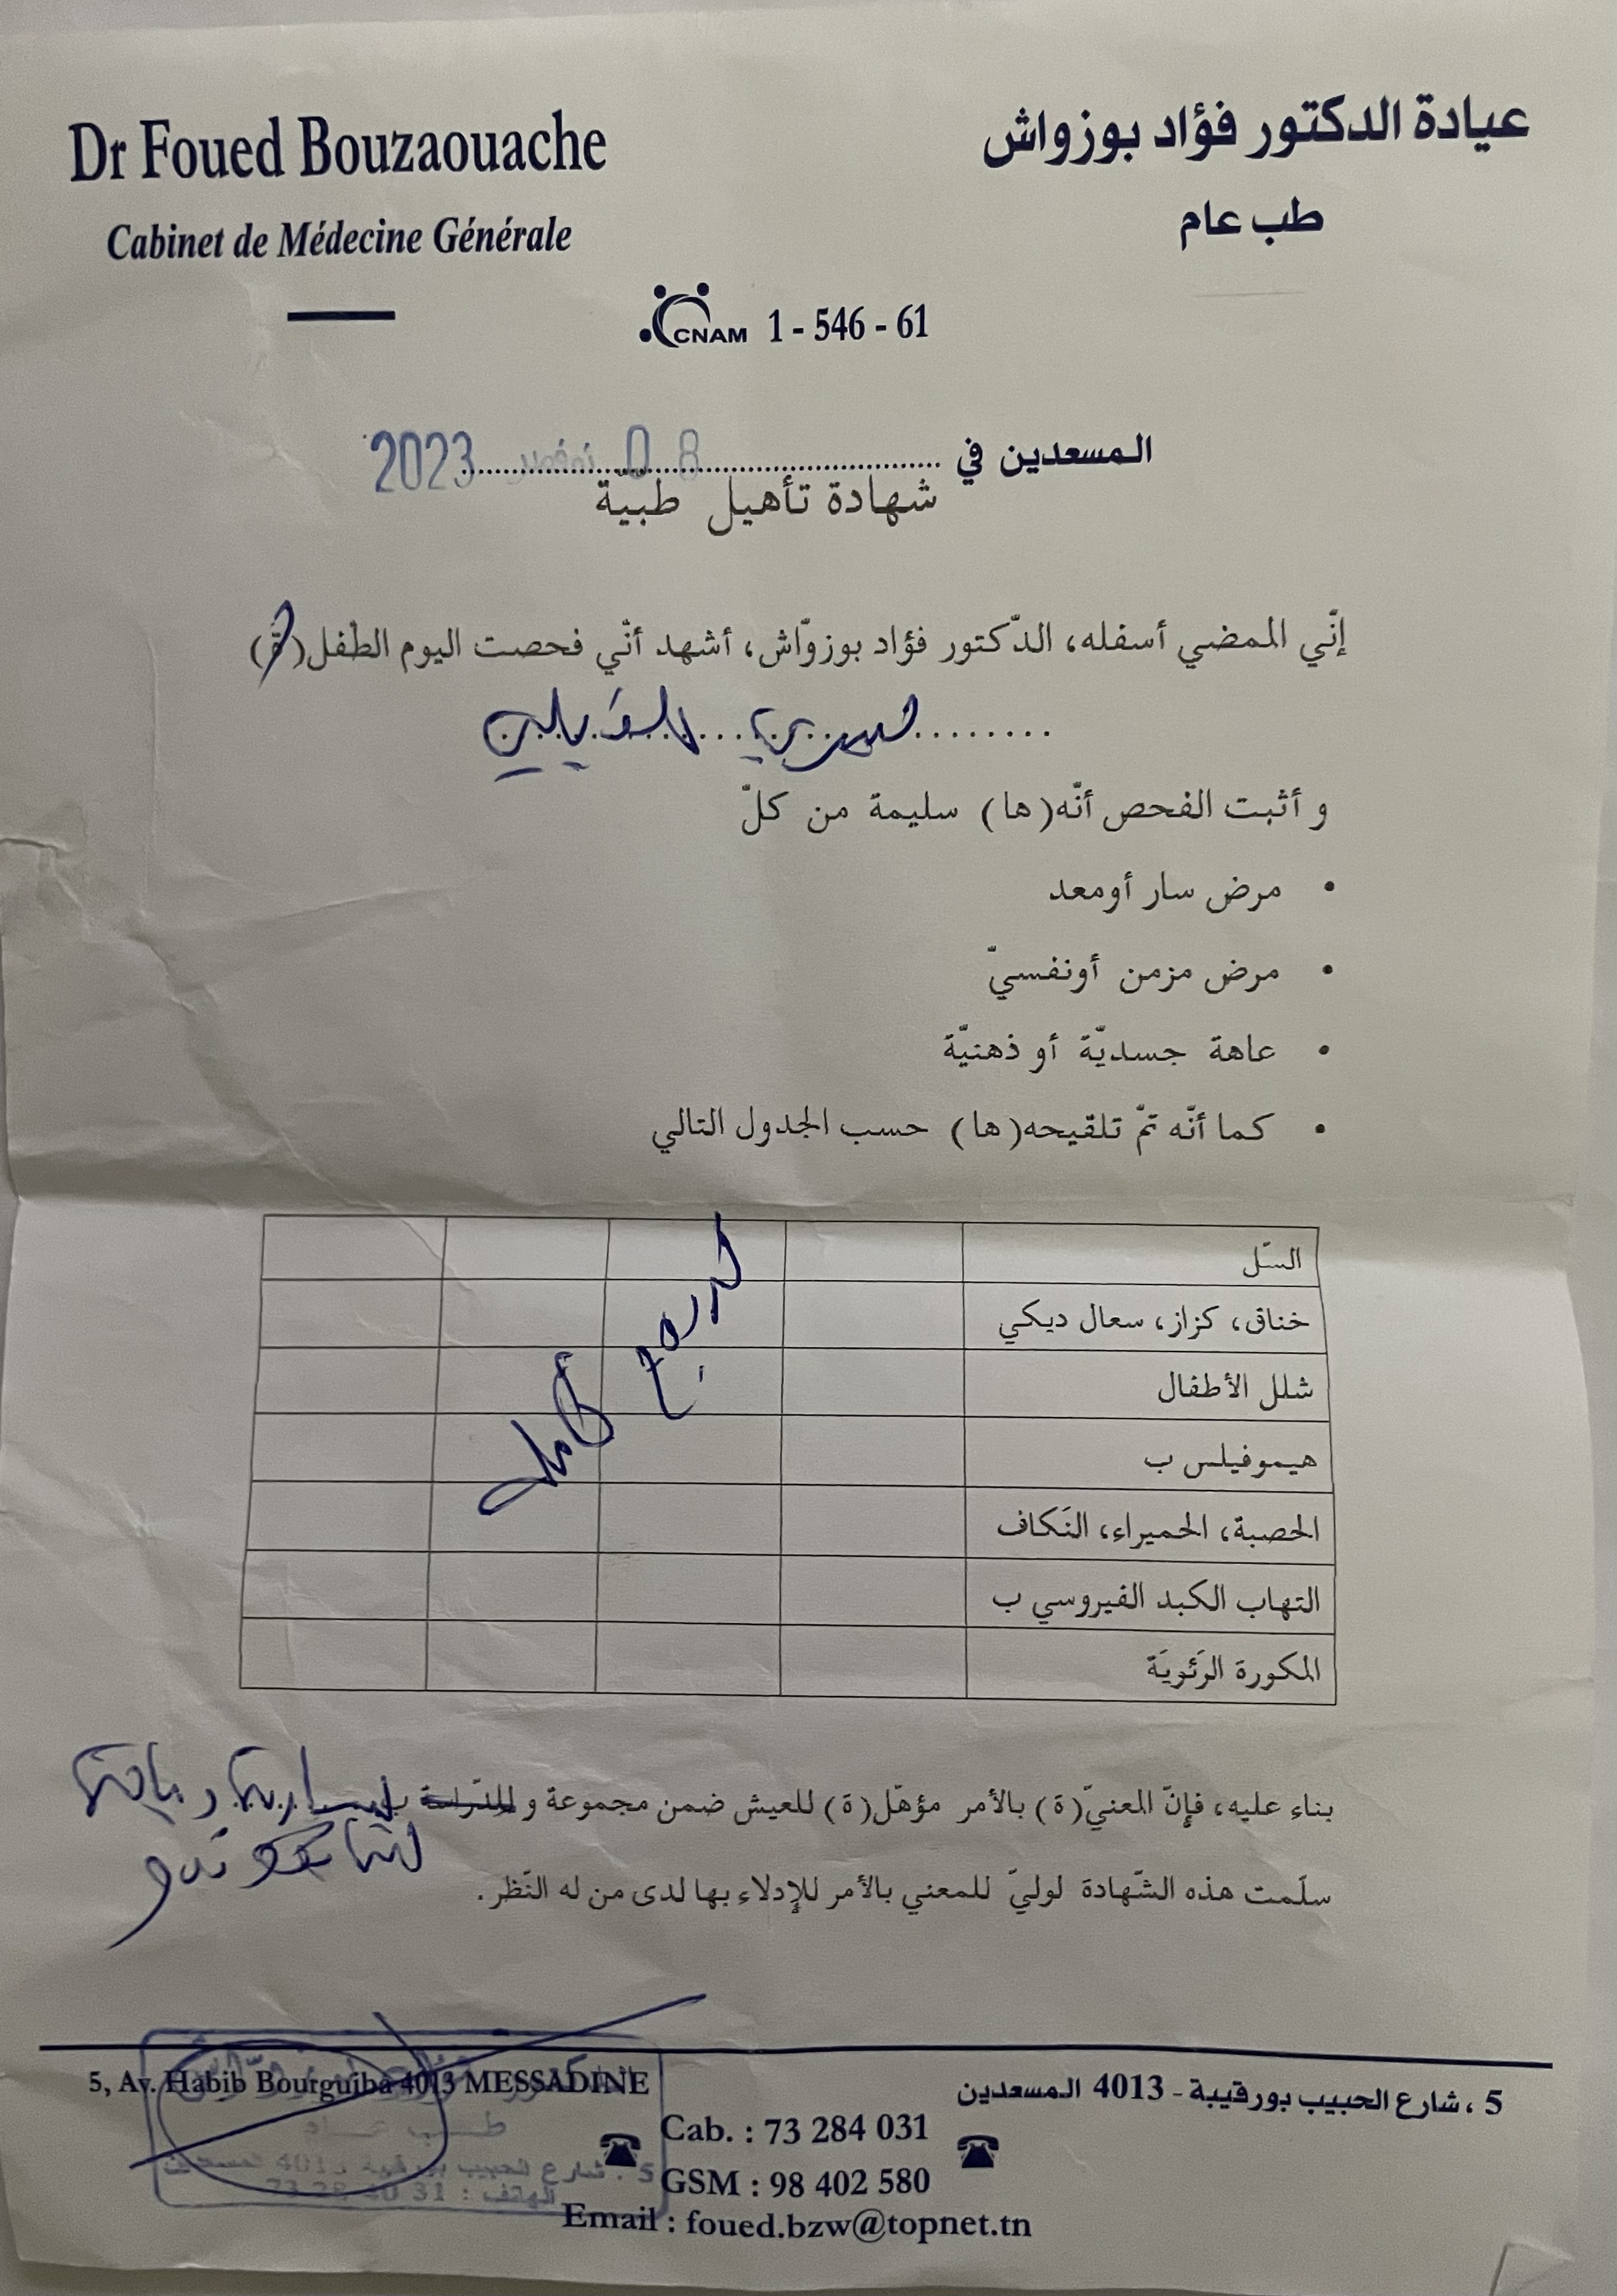 Dr Foued Bouzaouache
عيادة الدكتور فؤاد بوزواش
Cabinet de Médecine Générale
طب عام
CNAM 1 - 546 - 61
المسعدين في 08 نوفمبر 2023
شهادة تأهيل طبيّة
إنّي الممضي أسفله، الدّكتور فؤاد بوزوّاش، أشهد أنّي فحصت اليوم الطّفل(ة)
و أثبت الفحص أنّه(ها) سليمة من كلّ
• مرض سار أومعد
• مرض مزمن أونفسيّ
• عاهة جسديّة أو ذهنيّة
• كما أنّه تمّ تلقيحه(ها) حسب الجدول التالي
السّل
خناق، كزاز، سعال ديكي
شلل الأطفال
هيموفيلس ب
الحصبة، الحميراء، النّكاف
التهاب الكبد الفيروسي ب
المكورة الرّئويّة
بناء عليه، فإنّ المعنيّ(ة) بالأمر مؤهّل(ة) للعيش ضمن مجموعة و للدّراسة ب رياضة
سلّمت هذه الشّهادة لوليّ للمعني بالأمر للإدلاء بها لدى من له النّظر.
5, Av. Habib Bourguiba 4013 MESSADINE
5 ، شارع الحبيب بورقيبة - 4013 المسعدين
طب عام
5 ، شارع الحبيب بورقيبة 4013 المسعدين
الهاتف : 73 28 40 31
Cab. : 73 284 031
GSM : 98 402 580
Email : foued.bzw@topnet.tn